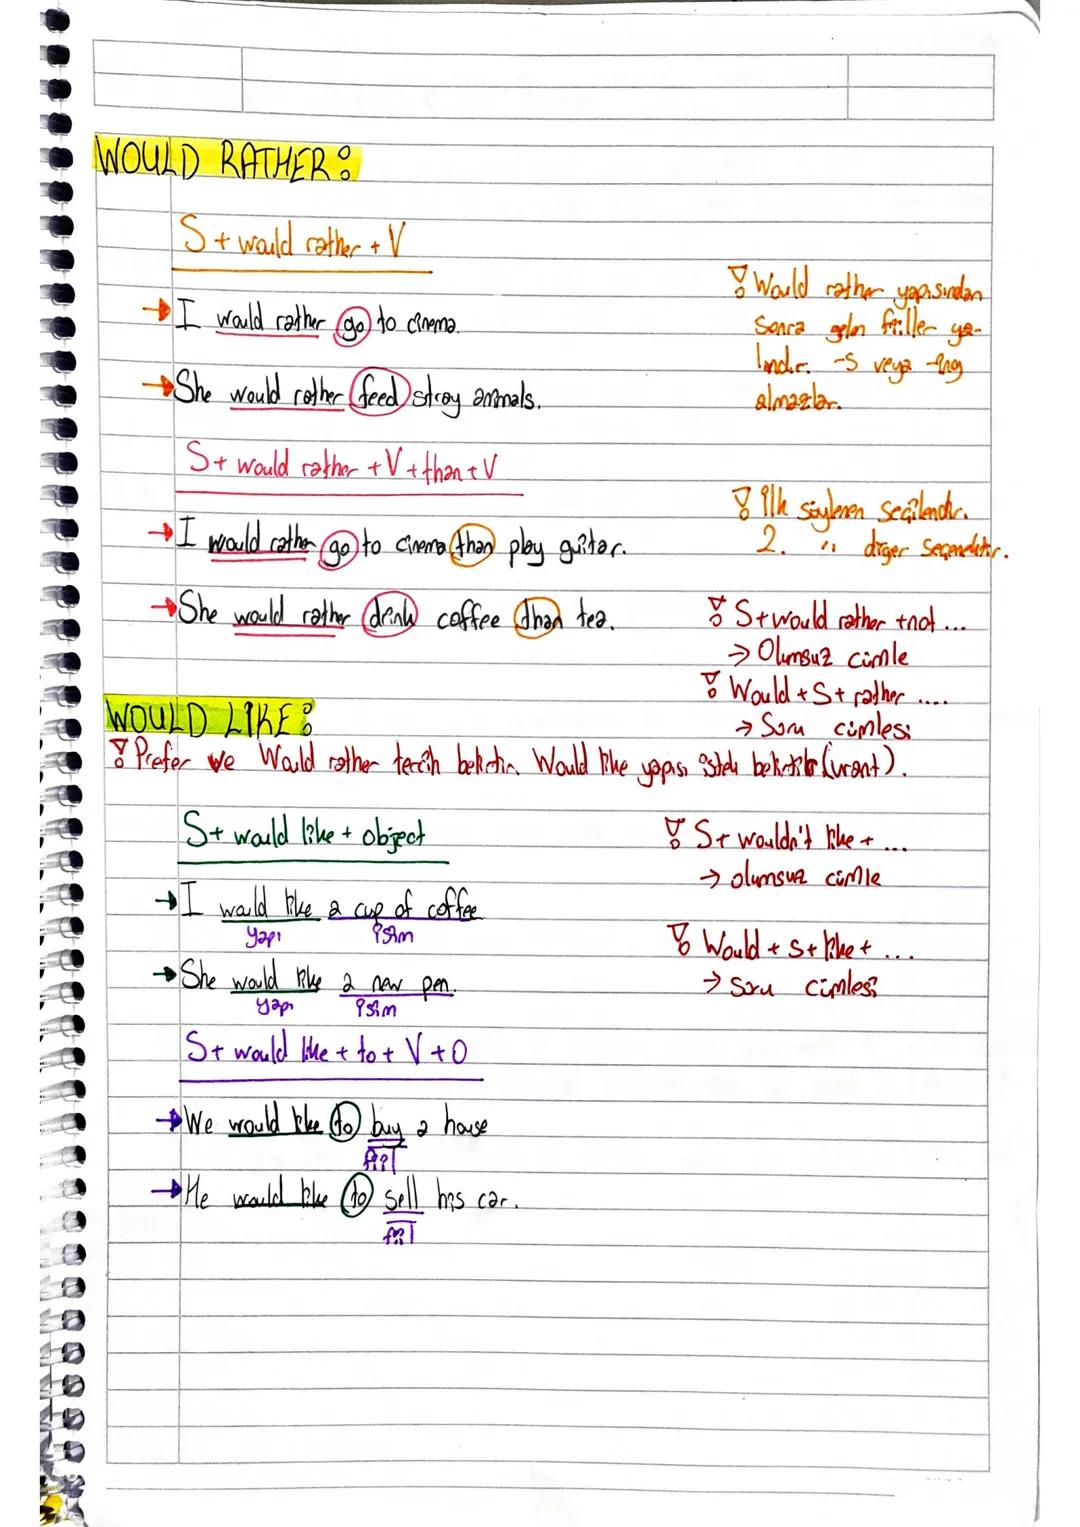 WOULD RATHER:
S + would rather + V
→ I would rather go to cinema.
→ She would rather feed stray animals.
! Would rather yapısından
sonra gelen fiiller ya-
lındır. -s veya -ing
almazlar.
S + would rather + V + than + V
→ I would rather go to cinema than play guitar.
→ She would rather drink coffee than tea.
! İlk söylenen seçilendir.
2. " diğer seçenektir.
! S + would rather + not ...
→ Olumsuz cümle
! Would + S + rather ....
→ Soru cümlesi
WOULD LIKE:
! Prefer ve Would rather tercih belirtir. Would like yapısı istek belirtir (want).
S + would like + object
→ I would like a cup of coffee
yapı isim
→ She would like a new pen.
yapı isim
! S + wouldn't like + ...
→ olumsuz cümle
! Would + S + like + ...
→ Soru cümlesi
S + would like + to + V + O
→ We would like to buy a house
fiil
→ He would like to sell his car.
fiil